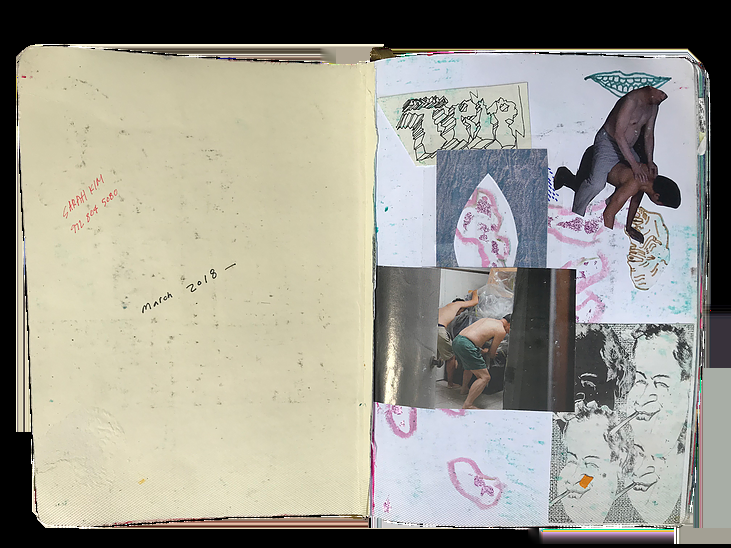 SARAH KIM
712 804 5080
March 2018 —